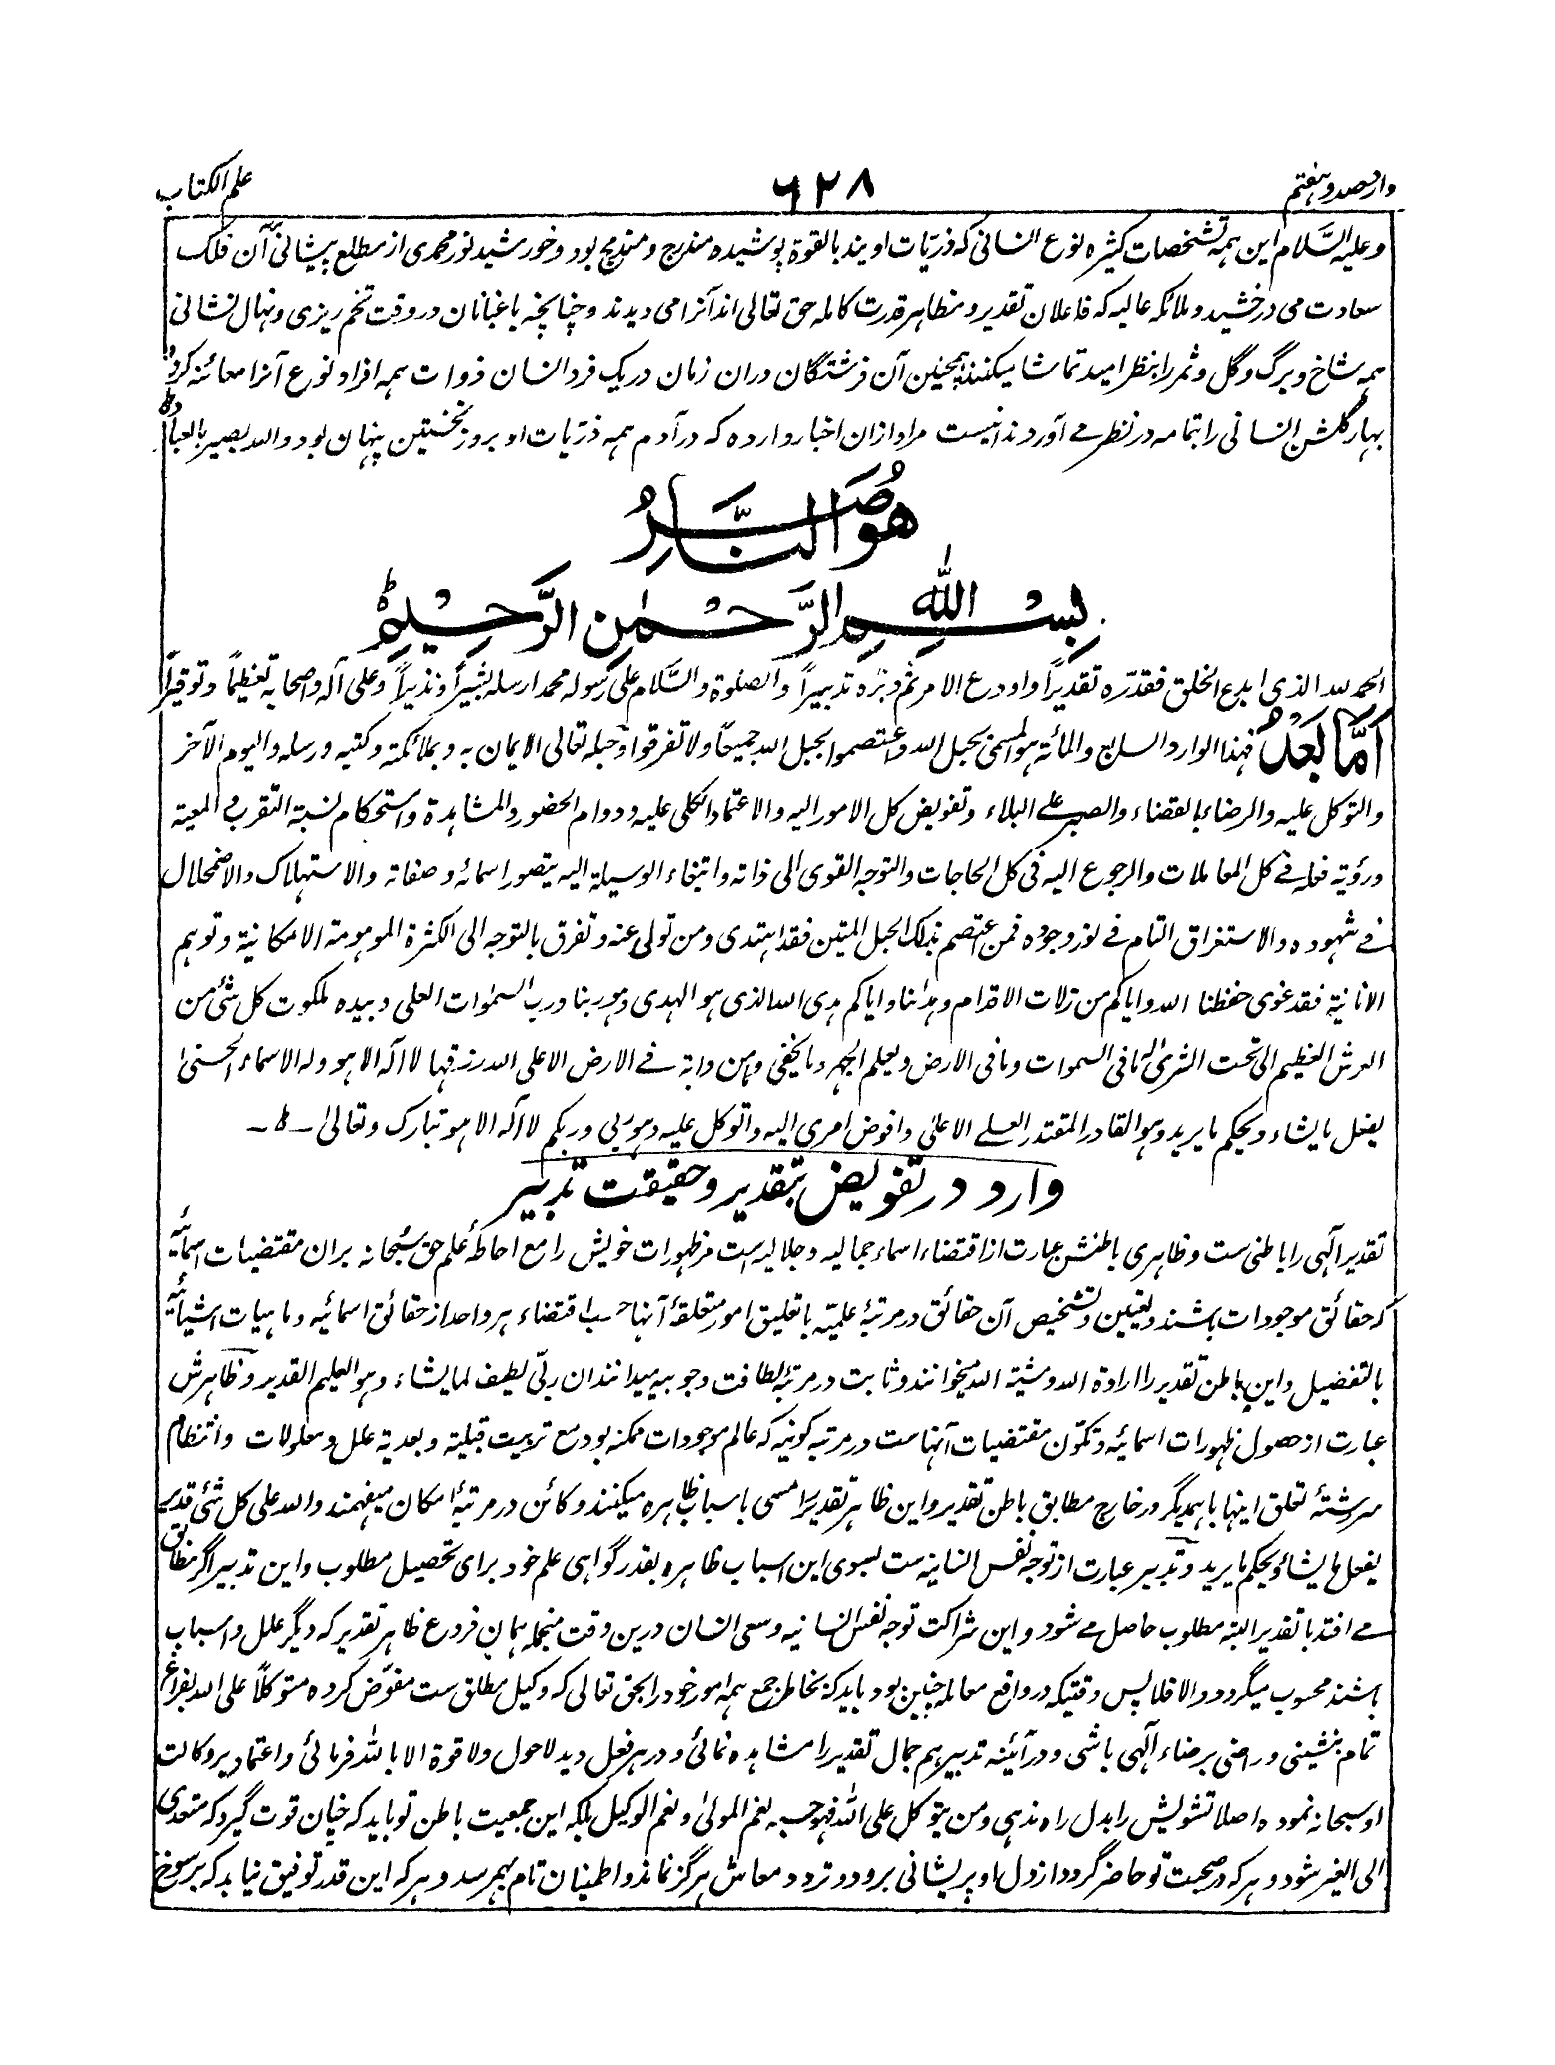 وارد صد و هفتم
۶۲۸
علم الکتاب
و علیه السَّلام این همه تشخصات کثیره نوع انسانی که ذرّیات اویند بالقوة پوشیده مندرج و مندمج بود و خورشید نور محمدی از مطلع پیشانی آن فلک
سعادت می درخشید و ملائکه عالیه که فاعلان تقدیر و مظاهر قدرت کامله حق تعالی اند آنرا می دیدند و چنانچه باغبانان در وقت تخم ریزی و نهال نشانی
همه شاخ و برگ و گل و ثمر را بنظر امید تماشا میکنند همچنین آن فرشتگان دران زمان در یک فرد انسان ذوات همه افراد نوع آنرا معائنه کرده
بهار گلشن انسانی را بتمامه در نظر مے آوردند اینست مراد ازان اخبار وارده که در آدم همه ذرّیات او بروز نخستین پنهان بود والله بصیر بالعباد
هو النَّاصِرُ
بِسْمِ اللهِ الرَّحْمٰنِ الرَّحِيْمِ ط
الحمد لله الذی ابدع الخلق فقدّره تقدیراً و اودع الامر ثم دبّره تدبیراً والصلوة والسَّلام علی رسوله محمد ارسله بشیراً ونذیراً وعلی آله واصحابه تعظیماً وتوقیراً
اَمَّا بَعْدُ فهذا الوارد السابع والمائة هو المسمی بحبل الله واعتصموا بحبل الله جمیعاً ولا تفرقوا وحبله تعالی الایمان به وبملائکته وکتبه ورسله والیوم الآخر
والتوکل علیه والرضاء بالقضاء والصبر علے البلاء وتفویض کل الامور الیه والاعتماد الکلی علیه ودوام الحضور والمشاهدة واستحکام نسبة التقرب والمعیة
ورؤیة فعله فے کل المعاملات والرجوع الیه فی کل الحاجات والتوجه القوی الی ذاته وابتغاء الوسیلة الیه بتصور اسمائه وصفاته والاستهلاک والاضمحلال
فے شهوده والاستغراق التام فے نور وجوده فمن اعتصم بذلک الحبل المتین فقد اهتدی ومن تولی عنه وتفرق بالتوجه الی الکثرة الموهومة الامکانیة وتوهم
الانانیة فقد غوی حفظنا الله وایاکم من زلات الاقدام وهدانا وایاکم هدی الله الذی هو الهدی وهو ربنا ورب السمٰوات العلی وبیده ملکوت کل شئ من
العرش العظیم الی تحت الثری له ما فی السموات وما فی الارض ویعلم الجهر وما یخفی وما من دابة فے الارض الا علی الله رزقها لا اله الا هو وله الاسماء الحسنیٰ
یفعل ما یشاء ویحکم ما یرید وهو القادر المقتدر العلے الاعلیٰ وافوض امری الیه واتوکل علیه وهو ربی وربکم لا اله الا هو تبارک وتعالیٰ ـ ط ـ
وارد در تفویض بتقدیر و حقیقت تدبیر
تقدیر آلهی را باطنی ست و ظاهری باطنش عبارت از اقتضاء اسماء جمالیه و جلالیه است مر ظهورات خویش را مع احاطهٔ علم حق سبحانه بران مقتضیات اسمائیه
که حقائق موجودات باشند و تعیین و تشخیص آن حقائق در مرتبهٔ علمیّه با تعلیق امور متعلقهٔ آنها حسب اقتضاء هر واحد از حقائق اسمائیه و ماهیات اشیائیه
بالتفصیل و این باطن تقدیر را ارادة الله و مشیّة الله میخوانند و ثابت در مرتبهٔ لطافت وجوبیه میدانند ان ربّی لطیف لما یشاء وهو العلیم القدیر و ظاهرش
عبارت از حصول ظهورات اسمائیه و تکوّن مقتضیات آنهاست در مرتبه کونیه که عالم موجودات ممکنه بود مع تربیت قبلیة و بعدیة علل و معلولات و انتظام
سررشتهٔ تعلق اینها با همدیگر در خارج مطابق باطن تقدیر و این ظاهر تقدیر را مسمی باسباب ظاهره میکنند و کائن در مرتبهٔ امکان میفهمند والله علی کل شئ قدیر
یفعل ما یشاء ویحکم ما یرید و تدبیر عبارت از توجه نفس انسانیه ست بسوی این اسباب ظاهره بقدر گواهی علم خود برای تحصیل مطلوب و این تدبیر اگر مطابق
مے افتد با تقدیر البته مطلوب حاصل مے شود و این شراکت توجه نفس انسانیه و سعی انسان درین وقت منجمله همان فروع ظاهر تقدیر که دیگر علل و اسباب
باشند محسوب میگردد و الا فلا پس وقتیکه در واقع معامله چنین بود باید که بخاطر جمع همه امور خود را بحق تعالی که وکیل مطلق ست مفوّض کرده متوکلاً علی الله بفراغ
تمام بنشینی و راضی برضاء آلهی باشی و در آئینه تدبیر هم جمال تقدیر را مشاهده نمائی و در هر فعل دید لاحول ولا قوة الا بالله فرمائی و اعتماد بر وکالت
او سبحانه نموده اصلا تشویش را بدل راه ندهی ومن یتوکل علی الله فهو حسبه نعم المولیٰ ونعم الوکیل بلکه این جمعیت باطن تو باید که چنان قوت گیرد که متعدی
الی الغیر شود و هر که در صحبت تو حاضر گردد از دل او پریشانی برود و تردد معاش هرگز نماند و اطمینان تام بهم رسد و هر که این قدر توفیق نیابد که برسوخ